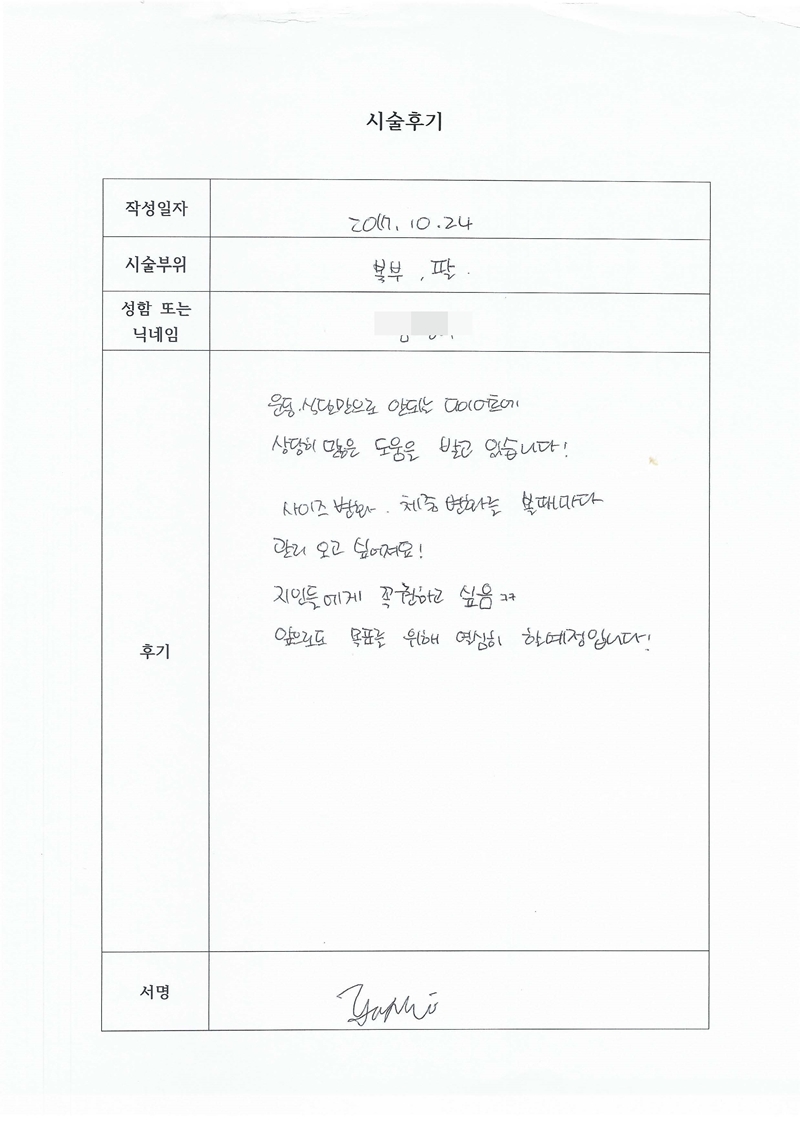 시술후기
작성일자
2017. 10. 24
시술부위
복부, 팔.
성함 또는
닉네임
운동.식단만으로 안되는 다이어트에
상당히 많은 도움을 받고 있습니다!
사이즈변화. 체중변화를 볼때마다
관리 오고 싶어져요!
지인들에게 꼭 권하고 싶음ㅋㅋ
앞으로도 목표를 위해 열심히 할예정입니다!
후기
서명